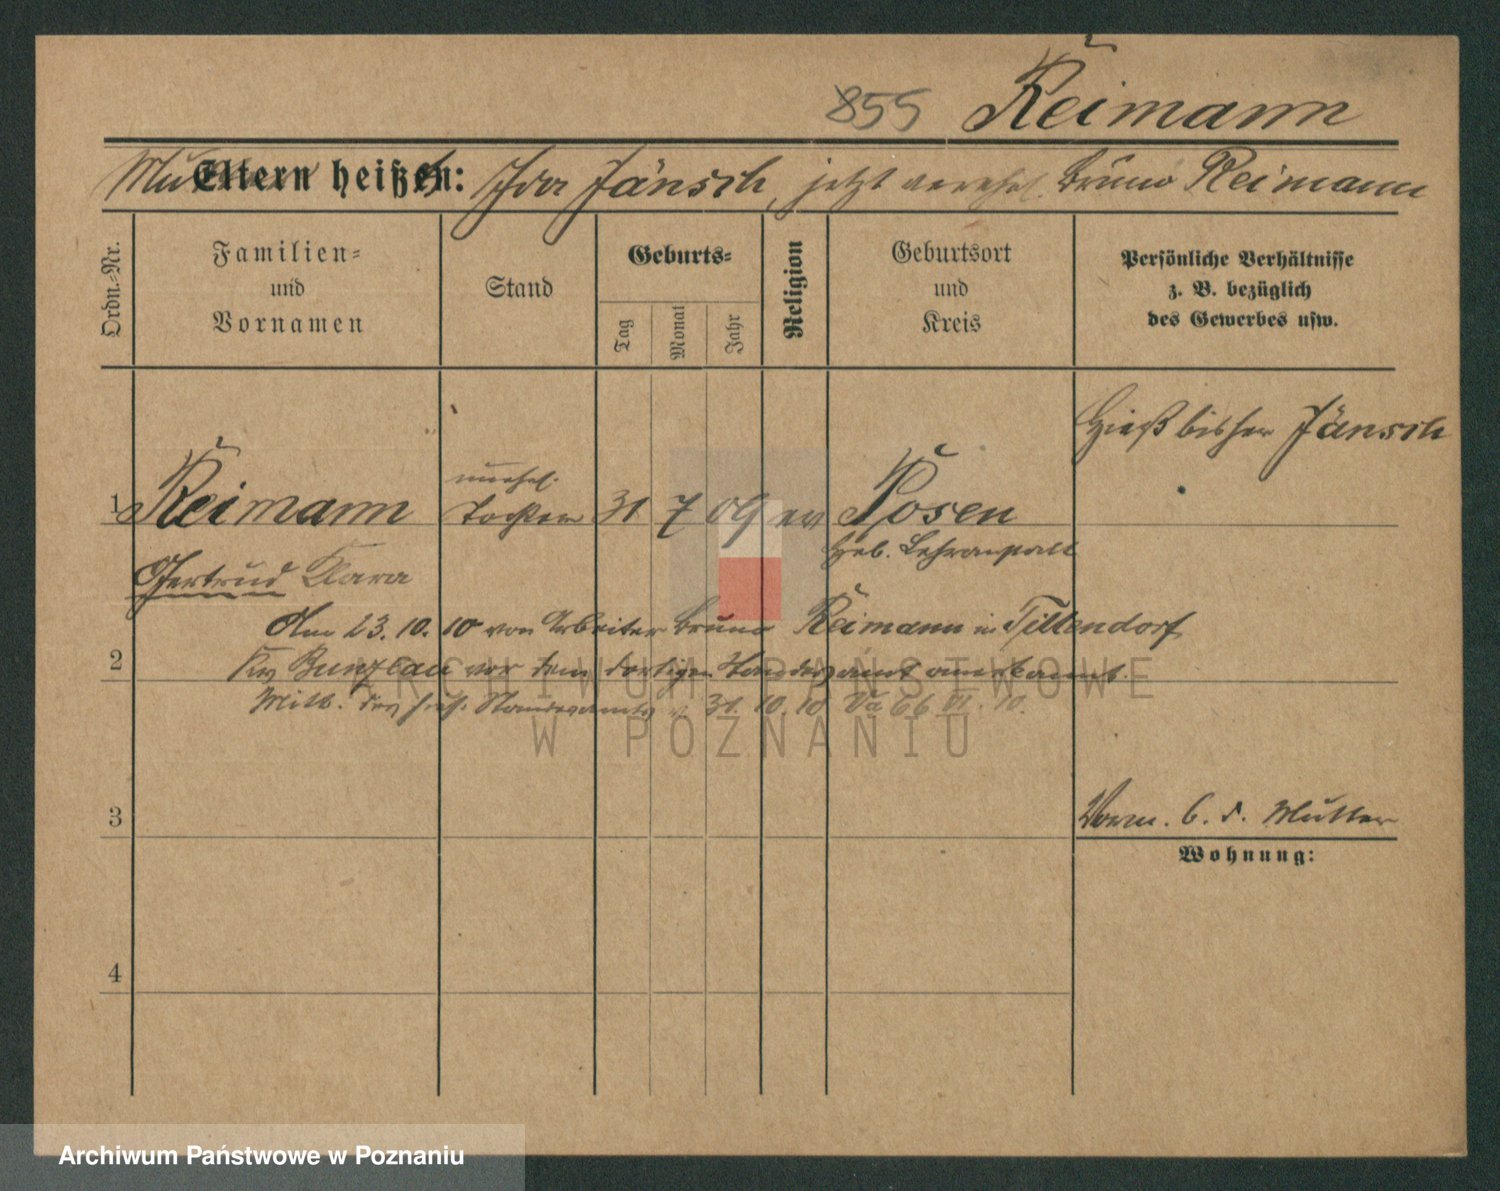 855 Reimann
Mutter Eltern heißen: Ida Jänsch, jetzt verehel. Bruno Reimann
Ordn.-Nr.
Familien-
und
Vornamen
Stand
Geburts-
Tag
Monat
Jahr
Religion
Geburtsort
und
Kreis
Persönliche Verhältnisse
z. B. bezüglich
des Gewerbes usw.
Hieß bisher Jänsch
unehel.
1 Reimann Tochter 31 7 09 ev Posen
Heb. Lehranstalt
Gertrud Klara
Am 23. 10. 10 von Arbeiter Bruno Reimann in Tillendorf
2
Krs Bunzlau vor dem dortigen Standesamt anerkannt.
Mitt. des hies. Standesamts v. 31. 10. 10 Va 66 VI. 10.
ARCHIWUM PAŃSTWOWE
W POZNANIU
3
Vorm. b. d. Mutter
Wohnung:
4
Archiwum Państwowe w Poznaniu